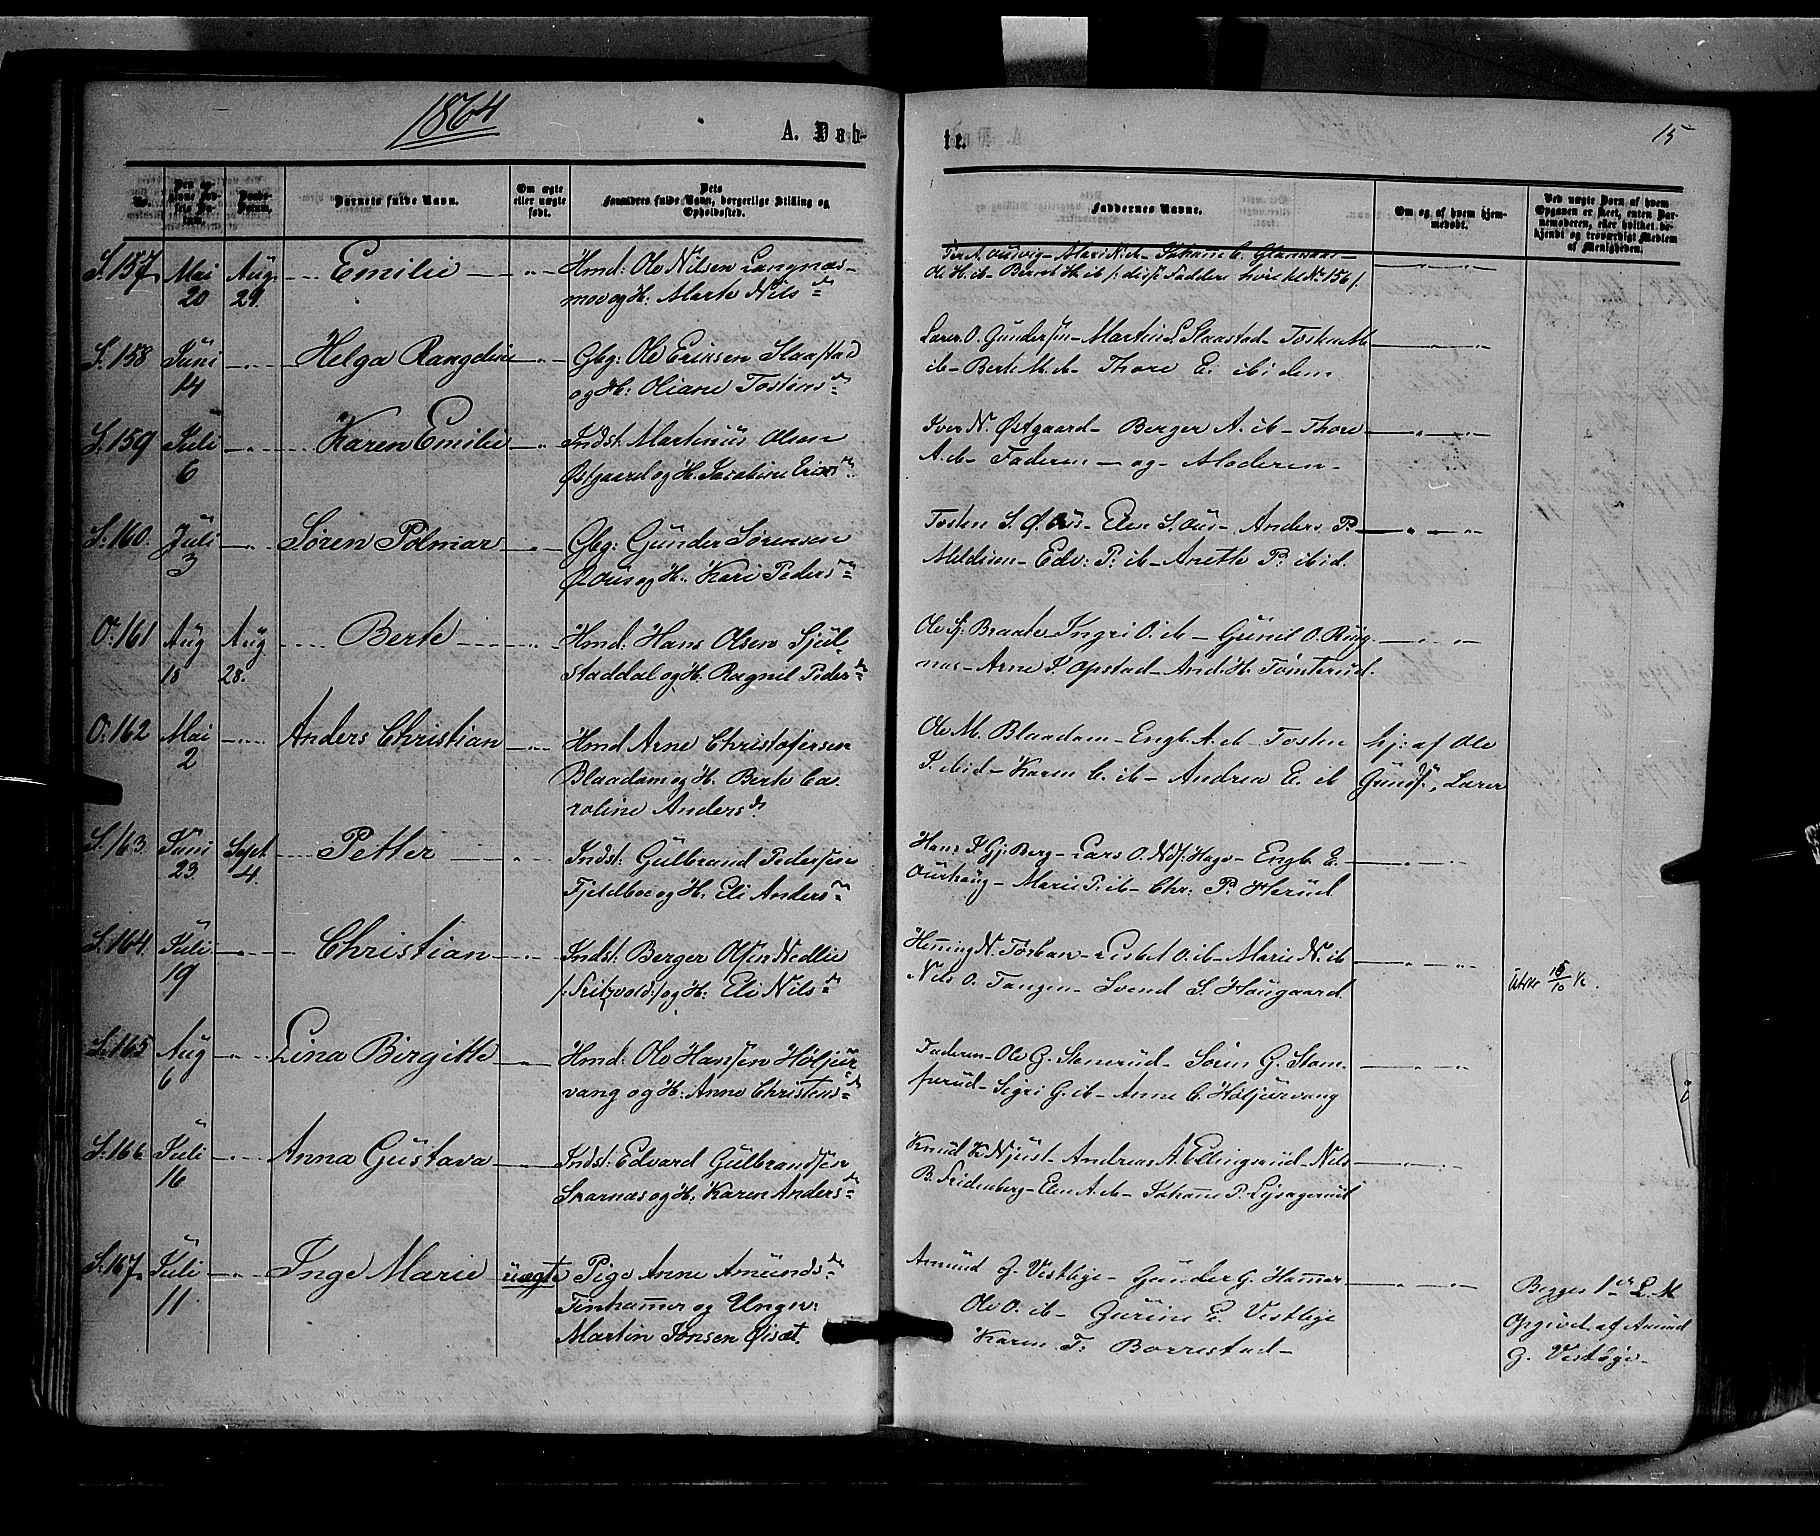 1864
A. Døb-
te.
15
No.
Barnets fulde Navn.
Om ægte eller uægte født.
Forældres fulde Navn, borgerlige Stilling og Opholdssted.
Faddernes Navne.
Om og af hvem hjemmedøbt.
Ved uægte Børn af hvem Opgaven er skeet, enten Barnemoderen, eller hvilket bekjendt og troværdigt Medlem af Menigheden.
S. 157. Mai 20 Aug. 29. Emilie
Hmd: Ole Nilsen Langnæs-
moe og H: Marte Nilsdr
Johane C.
Ole H. ib - Beret H. ib /: disse Faddere hørte til No 156 /.
S. 158 Juni 14 Helga Rangdine
Gbg: Ole Eriksen Slaastad
og H: Oliane Tostensdr
Lærer O. Gundersen - Martin S. Slaastad - Tosten M.
ib - Berte M. ib - Thore E. ibidem
S. 159 Juli 6 Karen Emilie
Indst: Martinius Olsen
Østgaard og H. Jacobine Ericsdr
Iver N. Østgaard - Berger A. ib - Thore
A. ib - Faderen - og - Moderen -
S. 160. Juli 3 Søren Polmar
Gbg: Gunder Sørensen
Ø. Ous og H. Kari Pedersdr
Tosten S. Ø. Ous - Elen S. Ous - Anders P.
Meldieen - Edv: P. ib - Anette P. ibid.
O. 161 Aug 18 Aug 28. Berte
Hmd: Hans Olsen Sjul-
staddal og H: Ragnil Pedersdr
Ole Sj. Braate Ingri O. ib - Gunil O. Rug-
næs - Arne P. Opstad - And. H. Tomterud.
O. 162 Mai 2 Anders Christian
Hmd Arne Christofersen
Blaadam og H. Berte Ca-
roline Andersdr
Ole M. Blaadam - Engb. A. ib - Tosten
P. ibid - Karen C. ib - Andrea E. ib
hj: af Ole
Gunds., Lærer
S. 163. Juni 23. Sept. 4. Petter
Indst: Gulbrand Pedersen
Fjeldboe og H. Eli Andersdr
Hans P. Gj: Berg - Lars O. Ndf: Hage - Engb. E.
Ourhaug - Marie P. ib - Chr. P. Harud
S. 164. Juli 19 Christian
Indst: Berger Olsen Nedlie
/: Fritzvold :/ og H: Eli Nilsdr
Henning N. Torhaw - Lisbet O. ib - Marie N. ib
Nils O. Tangen - Svend S. Hougaard.
S. 165 Aug 6 Lina Birgitte
Hmd: Ole Hansen Høljur
vang og H: Anne Christensdr
Faderen - Ole G. Stenerud - Søren G. Stom-
perud - Sigri G. ib - Anne C. Høljurvang
S. 166. Juli 16 Anna Gustava
Indst: Edvard Gulbrandsen
Skarnæs og H: Karen Andersdr
Knud K. Njust - Andreas A. Edingsrud - Nils
B. Fridenberg - Elen A. ib - Johane P. Lysagerud
S. 167. Juli 11 Inge Marie uægte
Pige Anne Amundsdr
Finhammer og Ungk:
Martin Jonsen Øisæt
Amund G. Vestbye - Gunder G. Hammer
Ole O. ib - Gurine E. Vestbye
Karen T. Borrestad -
Begges 1te L. M
Opgivet af Amund
G. Vestbye -